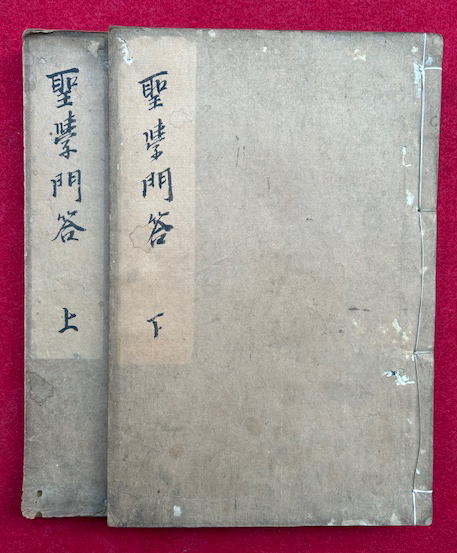 聖學問答 上
聖學問答 下